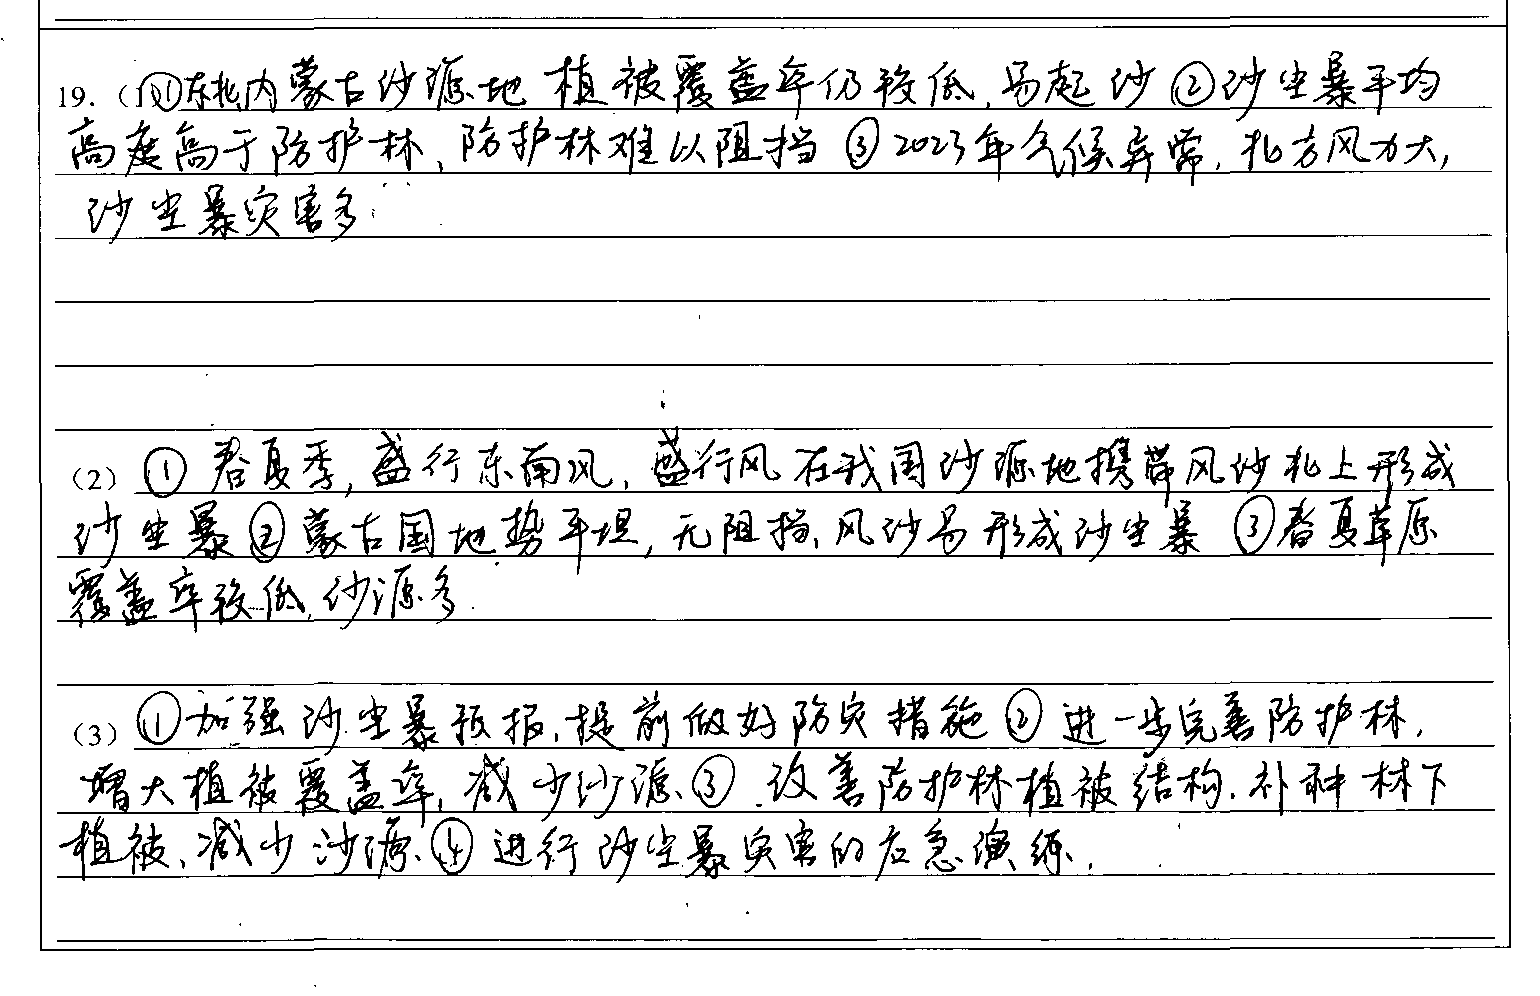 19.（1）①东北内蒙古沙源地植被覆盖率仍较低，易起沙②沙尘暴平均
高度高于防护林，防护林难以阻挡③2023年气候异常，北方风力大，
沙尘暴灾害多
（2）①春夏季，盛行东南风，盛行风在我国沙源地携带风沙北上形成
沙尘暴②蒙古国地势平坦，无阻挡，风沙易形成沙尘暴③春夏草原
覆盖率较低，沙源多
（3）①加强沙尘暴预报，提前做好防灾措施②进一步完善防护林，
增大植被覆盖率，减少沙源③改善防护林植被结构，补种林下
植被，减少沙源④进行沙尘暴灾害的应急演练.